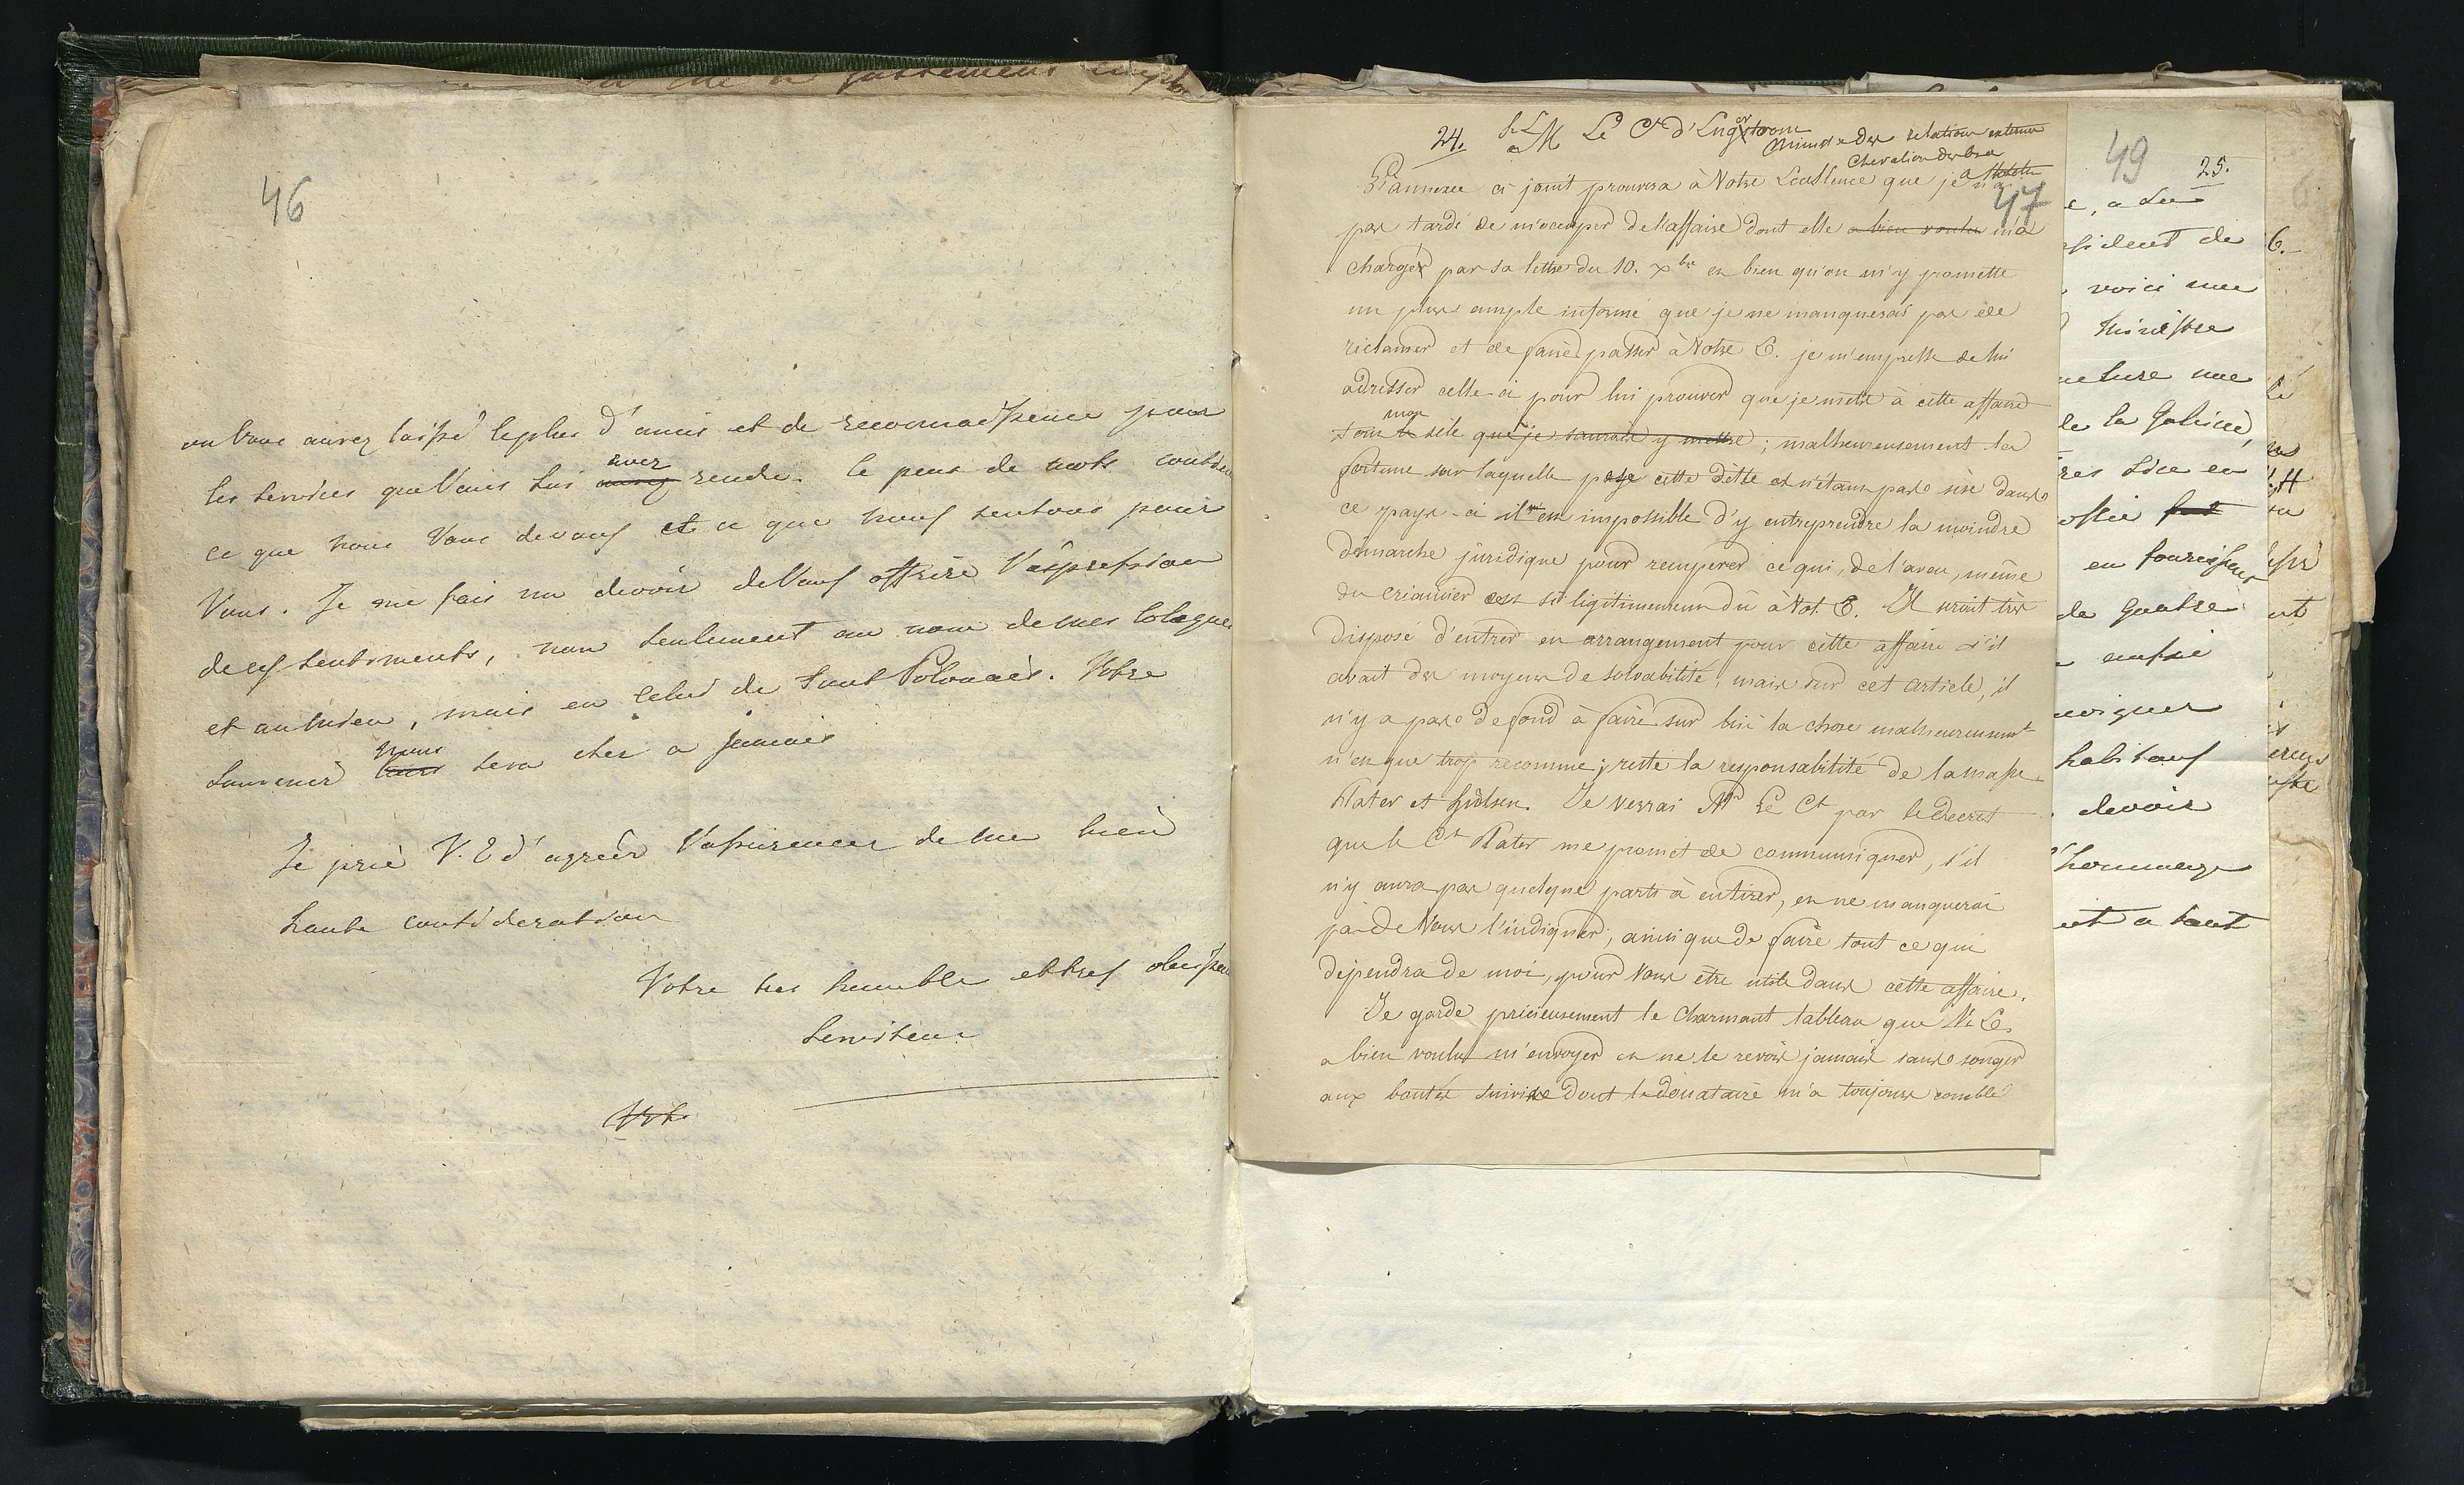 46
ou Vous aurez laissé le plus d'amis et de reconnoissence pour
les services que Vous lui avez rendu. le peux de mots contien
ce que nous Vous devons et ce que nous sentons pour
Vous. Je me fais un devoir de Vous offrire l'expression
de ces sentiments, non seulement au nom de mes Colegues
et au mien, mais en celui de tout Polonais. Votre
Souvenir nous sera cher a jamais
Je prie V. E d'agreer l'assurences de ma
haute consideration
Votre tres humble et tres obeissen
Serviteur
24. à S. E. M Le Ct d'Engestrom
Ministre des relations externes
Chevalier des
L'annexe ci joint prouvera à Votre Excellence que je n'ai
47
pas tardé de m'occuper de l'affaire dont elle a bien voulu m'a
charger par sa lettre du 10. Xbre et bien qu'on m'y promette
un plus ample informé que je ne manquerai pas de
réclamer et de faire passer à Votre E. je m'empresse de lui
adresser celle-ci pour lui prouver que je mets à cette affaire
mon
tout le zèle que je saurais y mettre; malheureusement la
fortune sur laquelle pose cette dette et n'étant pas sise dans
ce pays-ci il m'est impossible d'y entreprendre la moindre
démarche juridique pour recuperer ce qui, de l'aveu, même
du créancier est si légitimement dû à Vot. E. Il serait très
disposé d'entrer en arrangement pour cette affaire s'il
avait des moyens de solvabilité, mais sur cet article, il
n'y a pas de fond à faire sur lui la chose malheureusemt
n'est que trop reconnue; reste la responsabilité de la masse
Plater et Hülsen. Je verrai Mr Le Ct par le decret
que le Ct Plater me promet de communiquer, s'il
n'y aura pas quelque parti à en tirer, et ne manquerai
pas de Vous l'indiquer, ainsi que de faire tout ce qui
dépendra de moi, pour Vous être utile dans cette affaire.
Je garde précieusement le charmant tableau que V. E.
a bien voulu m'envoyer et ne le revois jamais sans songer
aux bontés dont le donataire m'a toujours comblé
49 25.
e, a du
sident de
voici une
Ministre
ature une
de la Galicie,
res Sice en
en
de Quatre
aussi
habitans
devoir
l'hommage
et a tout
6.